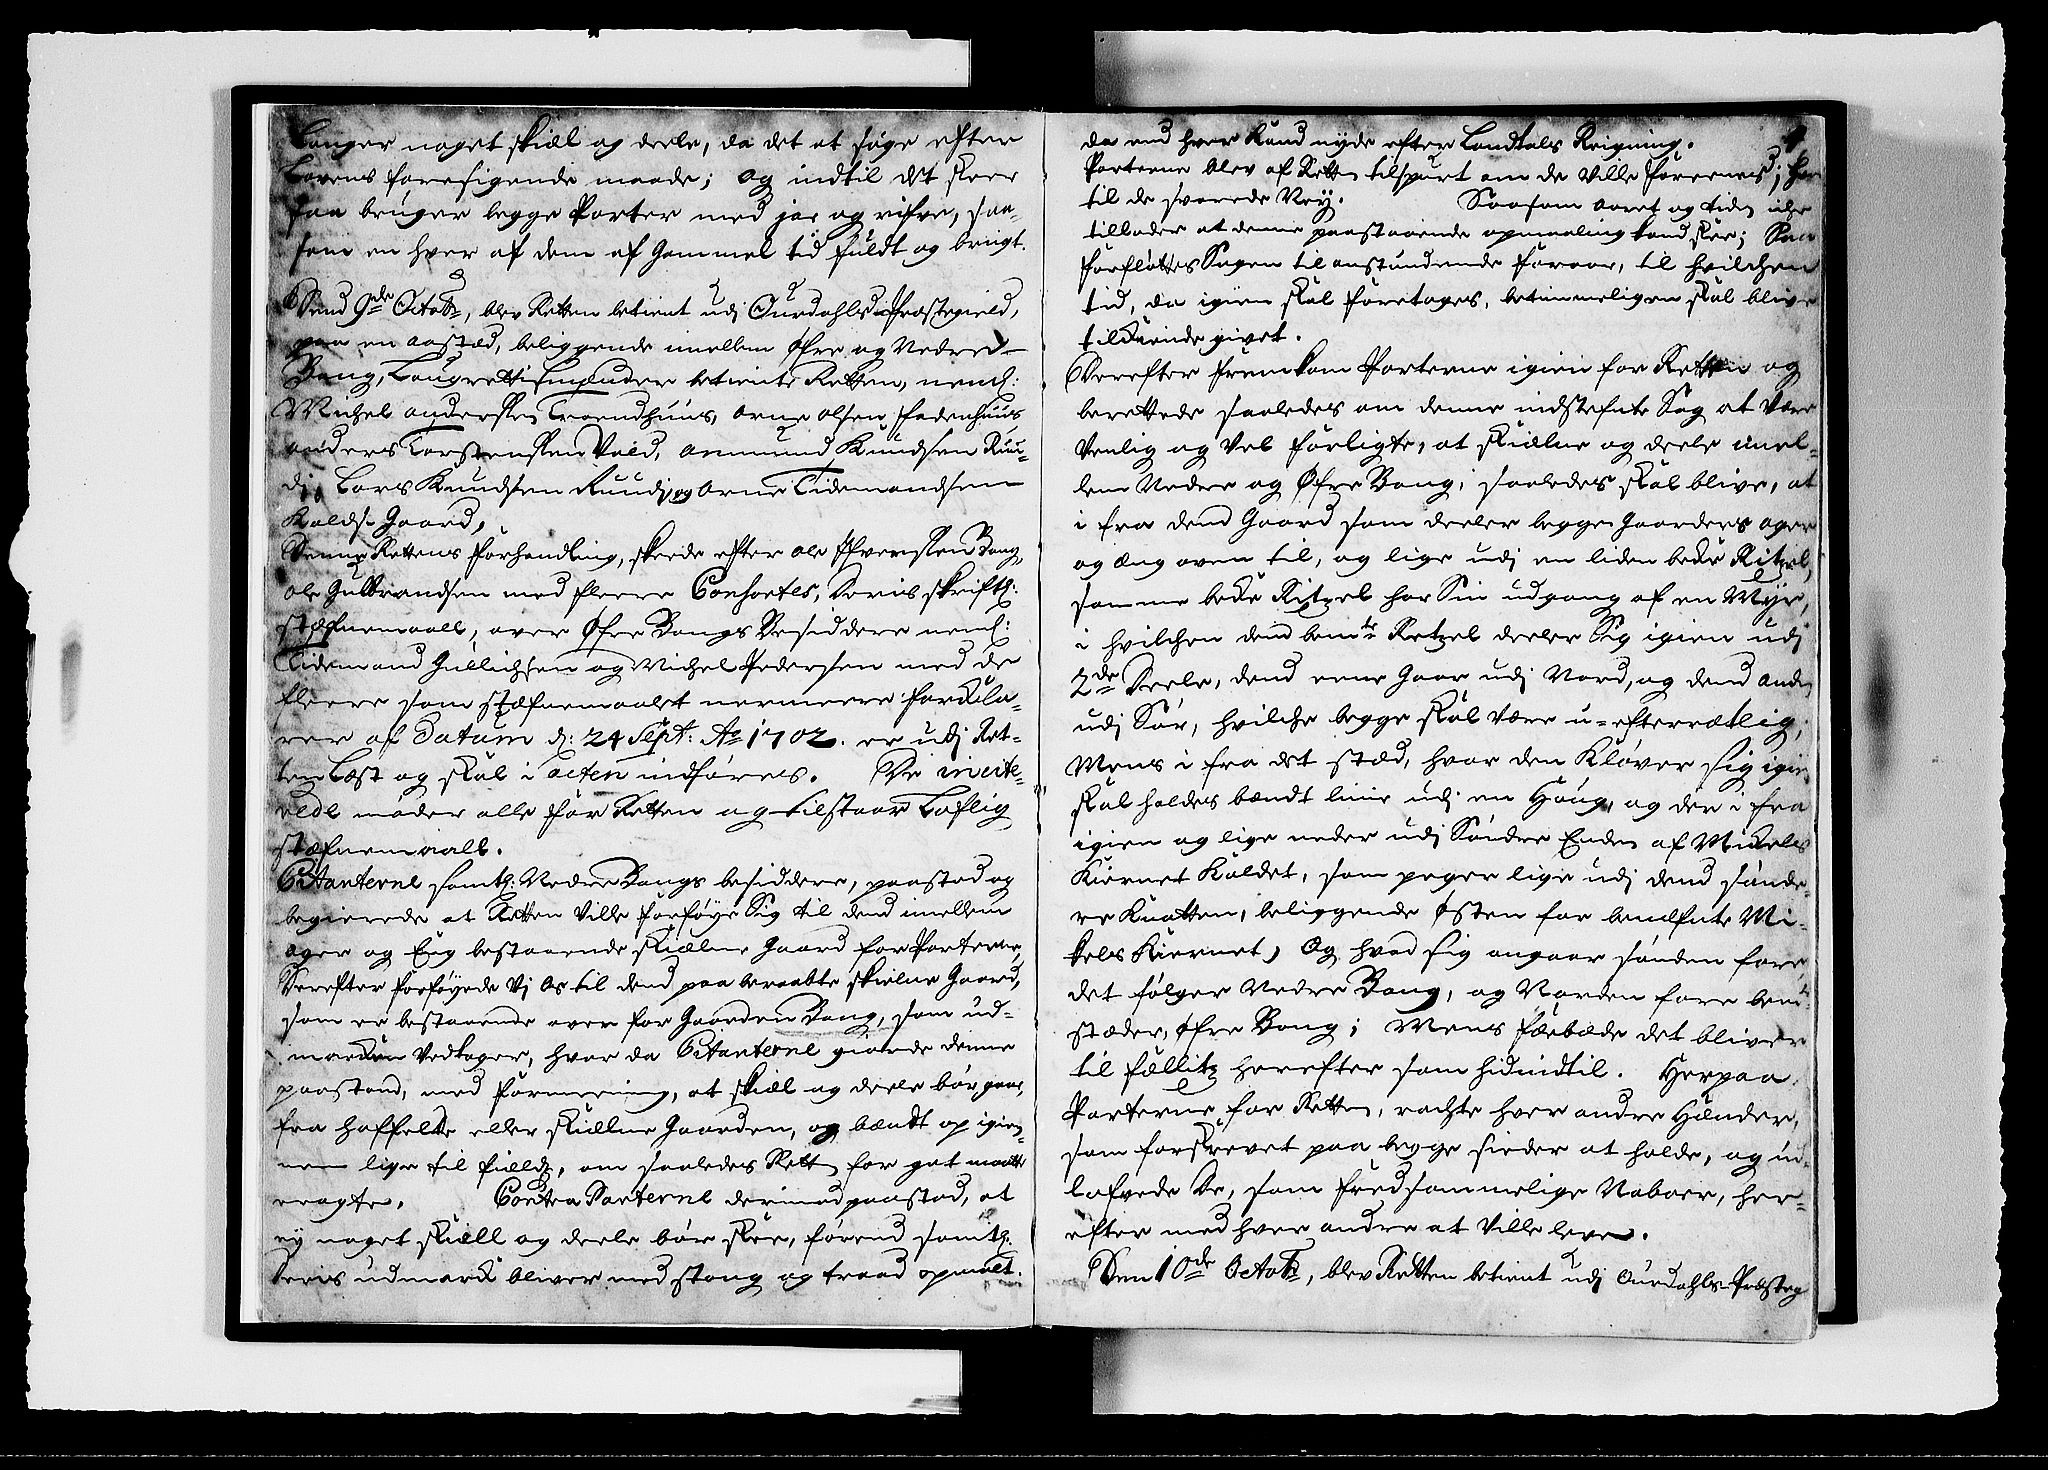 langer noget skiæl og deele, da det at søge efter
Lovens foresigende maade; og indtil det skeer
saa bruger begge Parter med jac og rifve, saa-
som en hver af dem af Gammel tid fuldt og brugt.
Dend 9de Octobr, blev Retten betient udj Ourdahls Præstegield,
paa en aastæd, beliggende imellem Øfre og Nedre
Bang, Laugrettismænder betiente Retten, neml:
Michel anderssen Trøendhuus, arne olsen
anders Torstenssen Vold, Ammund Knudsen Ruu-
di, Lars Knudsen Ruudj, og Arne Tidemandsen
Kalds Gaard,
Denne Rettens forhandling, skeede efter ole Ifverssen Bang,
ole Gulbrandsen med fleere Consortes, Deris skriftl:
stæfnemaall, over Øfre Bangs Besiddere neml:
Tidemand Gullichsen og Michel Pedersen med de
fleere som stæfnemaalet nermeere forkla-
rer af Datum d: 24 Sept: Ao 1702. er udj Ret-
ten Læst og skal i acten indføres. De incite-
rede møder alle for Retten og tilstaar Laflig
stæfnemaall.
Citanterne samtl: Nedre Bangs besiddere, paastod og
begierede at Retten ville forføye Sig til dend imellem
ager og Eng bestaaende skiælne Gaard for Parterne,
Derefter forføyede Vj Os til dend paaberaabte skielne Gaard,
som er bestaaende oven for Gaarden Bang, som ud-
marken Vedkager, hvor da Citanterne giorde denne
paastand, med formeening, at skiæl og deele bør gaae,
fra haffelde eller skiælne Gaarden, og bændt op igien-
nem lige til field, om saaledes Rett for got maatte
eragte. Contra Parterne derimod paastod, at
ej noget skiæll og deele bør skee, førend samtl:
Deris udmark bliver med stang og traad opmaalt.
da end hver kand nyde efter Landtals Reigning.
Parterne blev af Retten tilspurt om de ville foreenes; her
til de svarede Ney. Saasom aaret og tiden iche
tillader at denne paastaaende opmaaling kand skee; Saa
forflottes Sagen til anstundende foraar, til hvilchen
tid, da igien skal foretages, betimmeligen skal blive
tilkiende givet.
Derefter fremkom Parterne igien for Retten og
berettede saaledes om denne indstefnte Sag at være
Venlig og Vel forligte, at skiælne og deele imel-
lem Nedre og Øfre Bang, saaledes skal blive, at
i fra dend Gaard som deeler begge Gaarders ager
og æng oven til, og lige udj en liden beke Ritzel,
samme beke Ritzel har Sin udgang af en Myr,
i hvilchen dend bemte Retzel deeler Sig igien udj
2de Deele, dend eene Gaar udj Nord, og dend anden
udj Sør, hvilche begge skal være u-efterrætlig;
Mens i fra det stæd, hvor den Kløver sig igien
skal holdes bændt linie udj en Houg, og der i fra
igien og lige neder udj Søndre Enden af Mikels
Kiernet Kaldet, som peger lige udj dend sønde-
re Knatten, beliggende østen for benefnte Mi-
kels Kiernet, Og hvad sig angaar sønden fore
det følger Nedre Bang, og Norden fore bemte
stæder, øfre Bang; Mens Færbæde det bliver
til fællitz herefter som hidindtil. Herpaa
Parterne for Retten, rachte hver andre Hænder,
som forskrevet paa begge sieder at holde, og ud-
lafvede De, som fredsommelige Naboer, her-
efter med hver andre at Ville leve.
Den 10de Octobr, blev Retten betient udj Ourdahls Præsteg